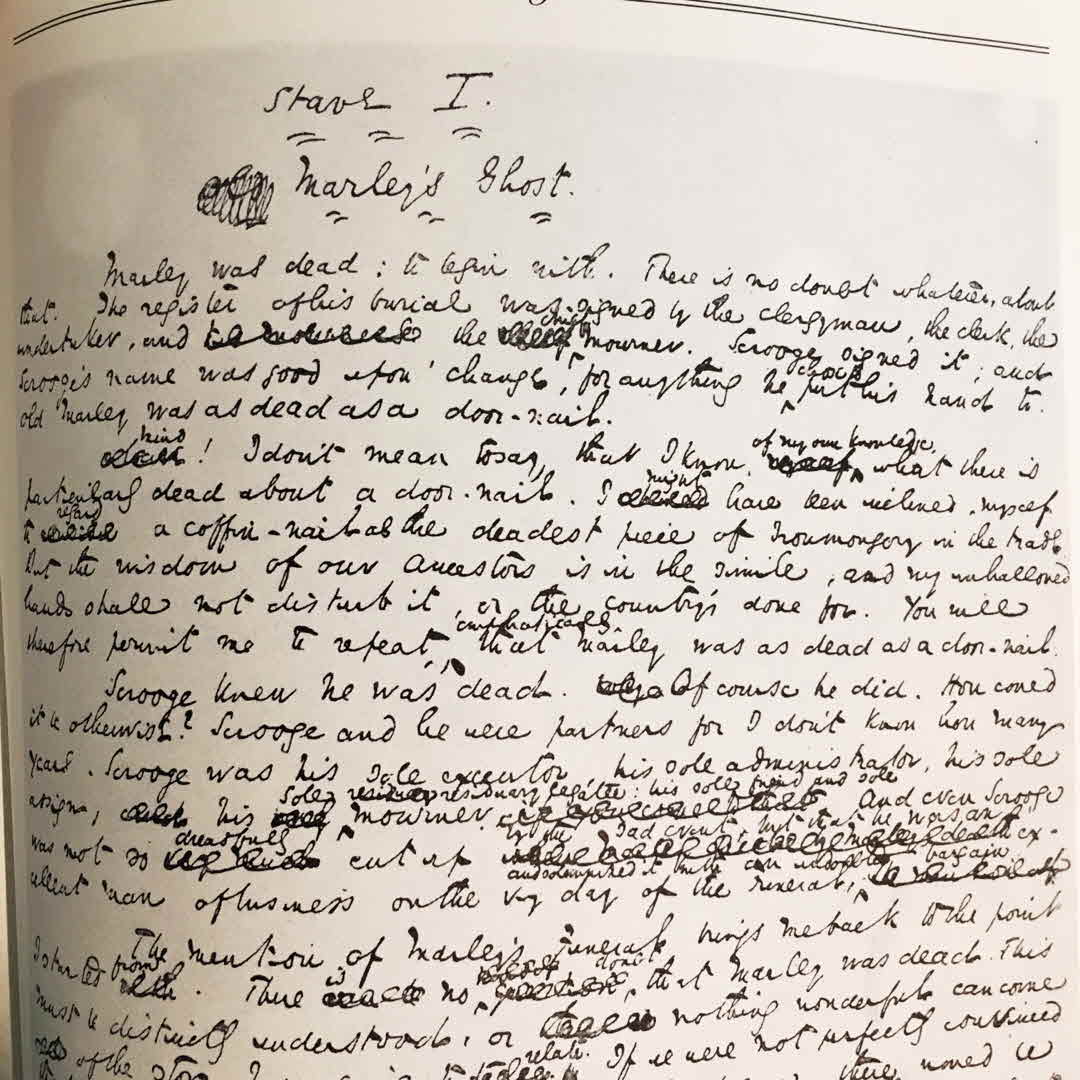 Stave I.
Marley's Ghost.
Marley was dead: to begin with. There is no doubt whatever, about
that. The register of his burial was signed by the clergyman, the clerk, the
undertaker, and the chief mourner. Scrooge signed it; and
Scrooge's name was good upon 'change, for anything he chose to put his hand to.
old Marley was as dead as a door-nail.
Mind! I don't mean to say, that I know, of my own knowledge, what there is
particularly dead about a door-nail. I might have been inclined, myself
to regard a coffin-nail as the deadest piece of Ironmongery in the trade.
But the wisdom of our Ancestors is in the simile, and my unhallowed
hands shall not disturb it, or the country's done for. You will
therefore permit me to repeat, emphatically, that Marley was as dead as a door-nail.
Scrooge knew he was dead. Of course he did. How could
it be otherwise? Scrooge and he were partners for I don't know how many
years. Scrooge was his sole executor, his sole administrator, his sole
assign, his sole residuary legatee: his sole friend and sole mourner. And even Scrooge
was not so dreadfully cut up by the sad event, but that he was an ex-
cellent man of business on the very day of the funeral, and solemnized it with an undoubted bargain
The mention of Marley's funeral brings me back to the point
I started from. There is no doubt, that Marley was dead. This
must be distinctly understood, or nothing wonderful can come
of the relate. If we were not perfectly convinced
there moved be